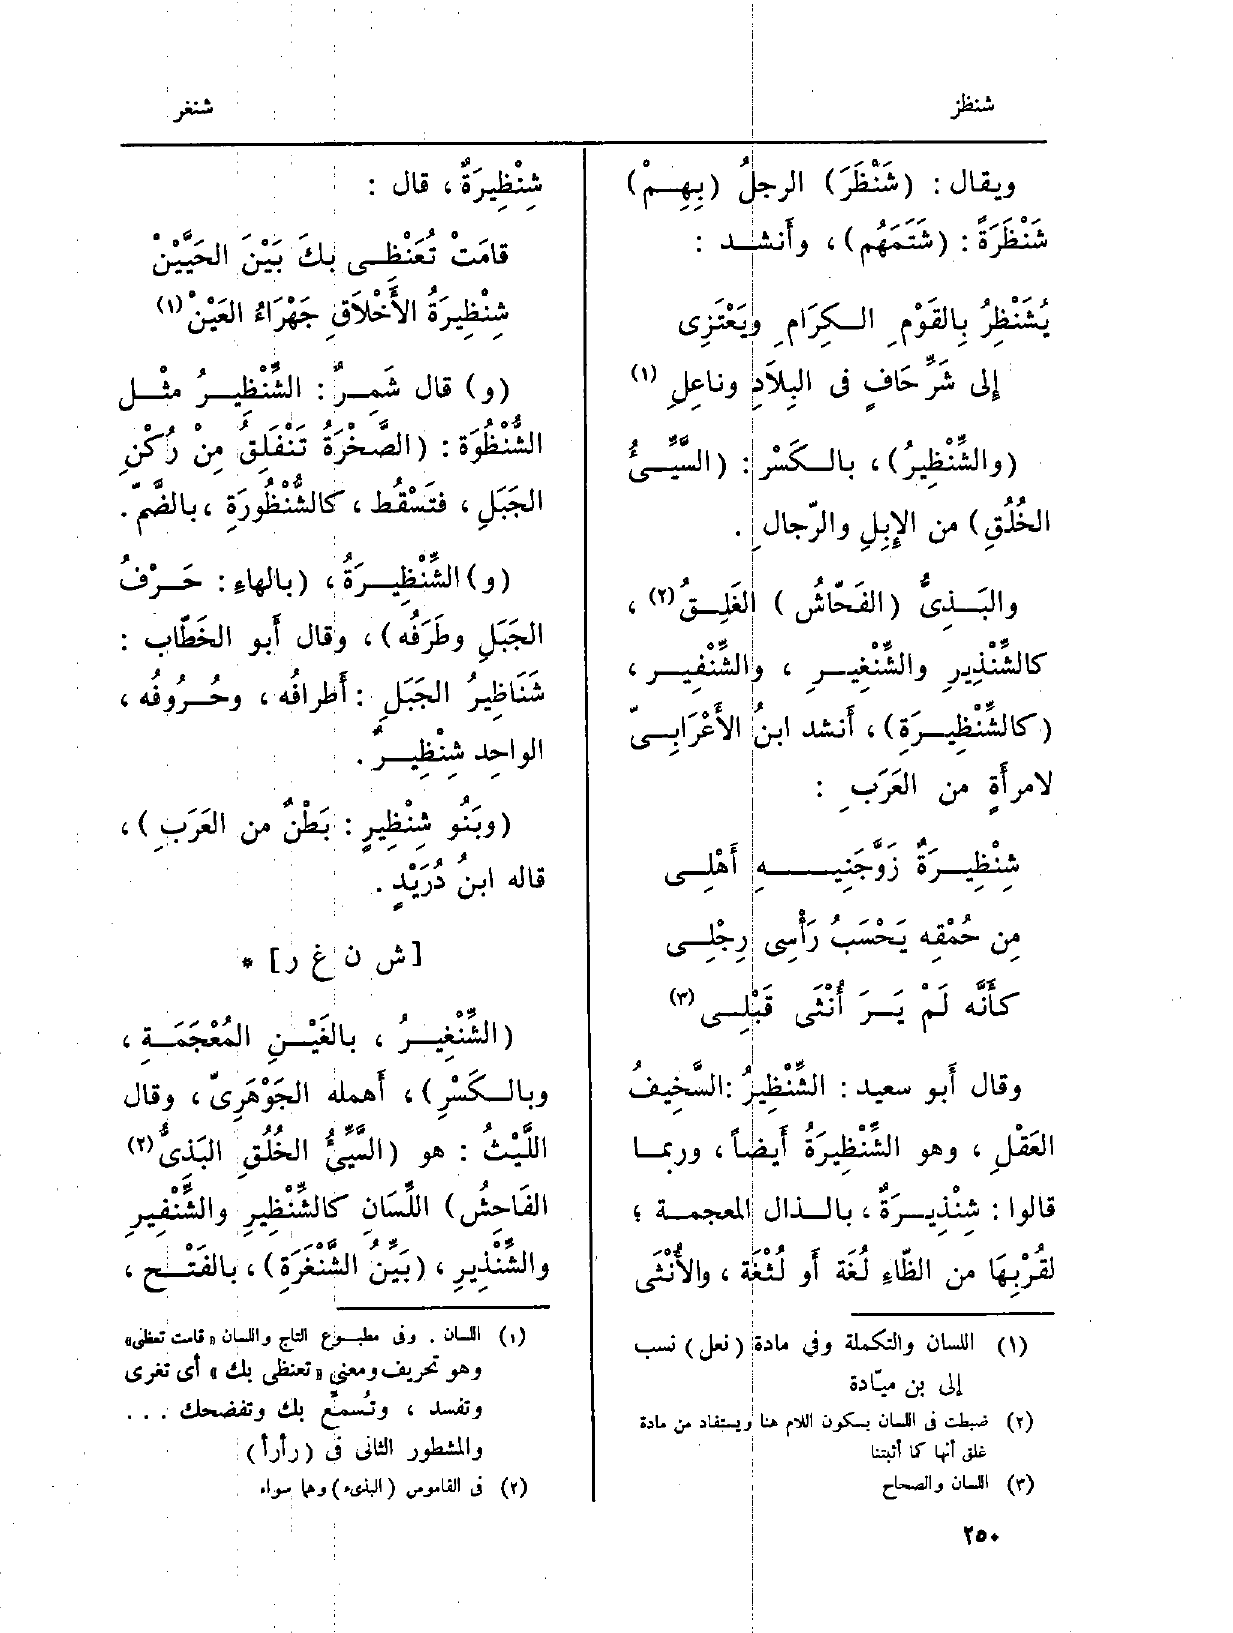 شنظر
شنغر
ويقال : (شَنْظَرَ) الرجلُ (بِهِمْ)
شَنْظَرَةً : (شَتَمَهُم) ، وأَنشد :
يُشَنْظِرُ بِالقَوْمِ الكِرَامِ ويَعْتَزِى
إلى شَرِّ حَافٍ فى البِلَادِ وناعِلِ (١)
(والشِّنْظِيرُ) ، بالكَسْر : (السَّيِّئُ
الخُلُقِ) من الإِبِلِ والرّجالِ .
والبَذِىُّ (الفَحّاشُ) الغَلِقُ (٢) ،
كالشِّنْذِيرِ والشِّنْغِيرِ ، والشِّنْفِيرِ ،
(كالشِّنْظِيرَةِ) ، أَنشد ابنُ الأَعْرَابِىّ
لامرأَةٍ من العَرَبِ :
شِنْظِيرَةٌ زَوَّجَنِيهِ أَهْلِى
مِن حُمْقِه يَحْسَبُ رَأْسِى رِجْلِى
كأَنَّه لَمْ يَرَ أُنْثَى قَبْلِى (٣)
وقال أَبو سعيد : الشِّنْظِيرُ : السَّخِيفُ
العَقْلِ ، وهو الشِّنْظِيرَةُ أَيضاً ، وربما
قالوا : شِنْذِيرَةٌ ، بالذال المعجمة ؛
لقُرْبِهَا من الظّاءِ لُغَة أَو لُثْغَة ، والأُنْثَى
(١) اللسان والتكملة وفي مادة (نعل) نسب
إلى بن ميّادة
(٢) ضبطت فى اللسان بسكون اللام هنا ويستفاد من مادة
غلق أنها كما أثبتنا
(٣) اللسان والصحاح
شِنْظِيرَةٌ ، قال :
قامَتْ تُعَنْظِى بِكَ بَيْنَ الحَيَّيْنْ
شِنْظِيرَةُ الأَخْلَاقِ جَهْرَاءُ العَيْنْ (١)
(و) قال شَمِرٌ : الشِّنْظِيرُ مثْل
الشُّنْظُوَة : (الصَّخْرَةُ تَنْفَلِقُ مِن رُكْنِ
الجَبَلِ ، فتَسْقُط ، كالشُّنْظُورَةِ ، بالضَّمّ .
(و) الشِّنْظِيرَةُ ، (بالهاءِ : حَرْفُ
الجَبَلِ وطَرَفُه) ، وقال أَبو الخَطّاب :
شَنَاظِيرُ الجَبَلِ : أَطرافُه ، وحُرُوفُه ،
الواحِد شِنْظِيرٌ .
(وبَنُو شِنْظِيرٍ : بَطْنٌ من العَرَبِ) ،
قاله ابنُ دُرَيْدٍ .
[ش ن غ ر] *
(الشِّنْغِيرُ ، بالغَيْنِ المُعْجَمَةِ ،
وبالكَسْرِ) ، أَهمله الجَوْهَرِىّ ، وقال
اللَّيْثُ : هو (السَّيِّئُ الخُلُقِ البَذِىُّ (٢)
الفَاحِشُ) اللِّسَانِ كالشِّنْظِيرِ والشِّنْفِيرِ
والشِّنْذِيرِ ، (بَيِّنُ الشَّنْغَرَةِ) ، بالفَتْحِ ،
(١) اللسان . وفى مطبوع التاج واللسان «قامت تعظى»
وهو تحريف ومعنى «تعنظى بك» أى تغرى
وتفسد ، وتُسمِّع بك وتفضحك ...
والمشطور الثانى فى (رأرأ)
(٢) فى القاموس (البذىء) وهما سواء
٢٥٠